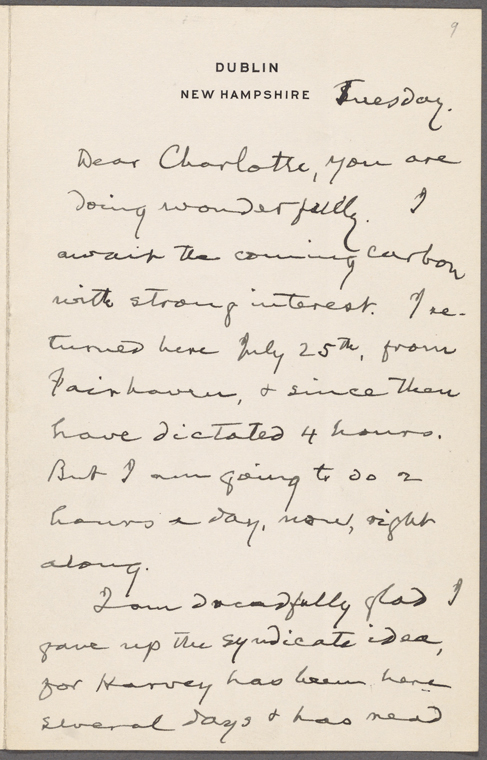 9
DUBLIN
NEW HAMPSHIRE
Tuesday.
Dear Charlotte, you are
doing wonderfully. I
await the coming carbon
with strong interest. I re-
turned here July 25th, from
Fairhaven, & since then
have dictated 4 hours.
But I am going to do 2
hours a day, now, right
along.
I am dreadfully glad I
gave up the syndicate idea,
for Harvey has been here
several days & has read